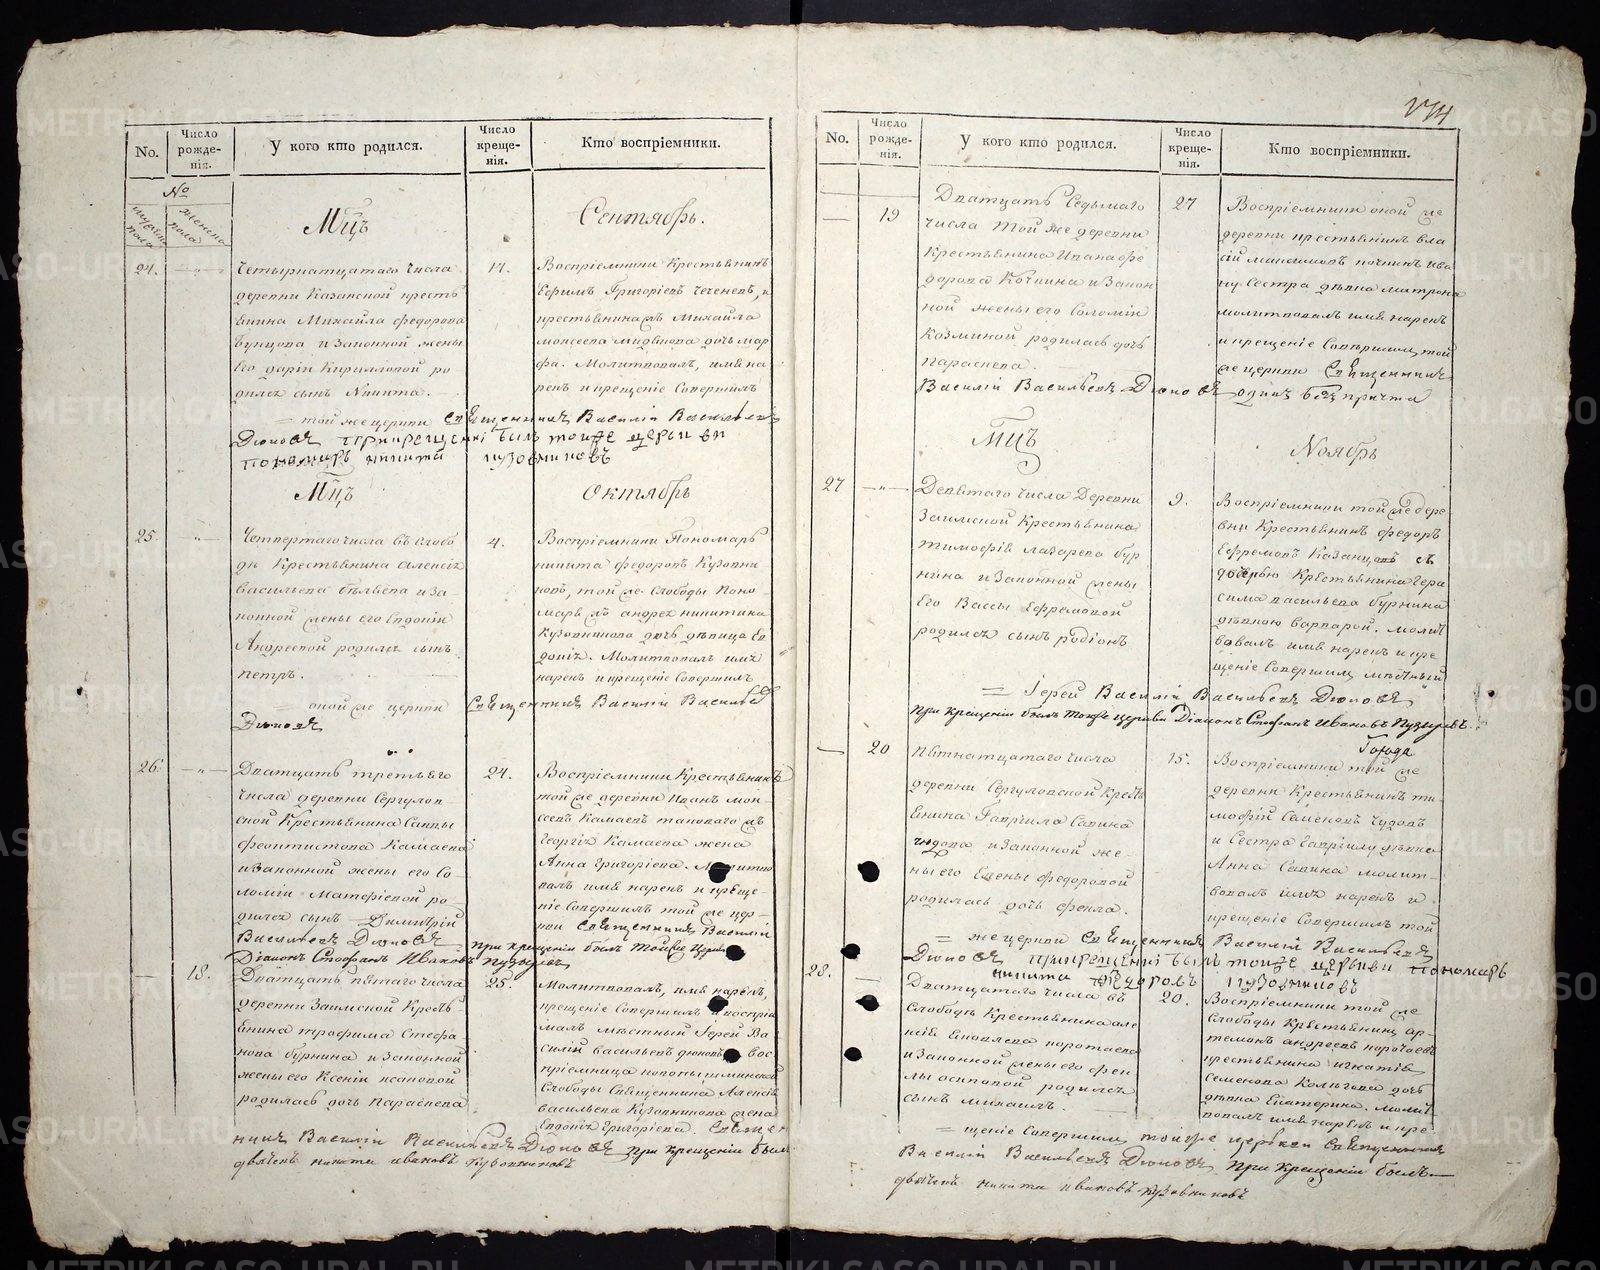 174
No.
Число рожденія.
У кого кто родился.
Число крещенія.
Кто воспріемники.
No
Мужеска пола
Женска пола
Мцъ
Сентябрь.
24.
Четырнатцатаго числа
деревни Казанской кресть
янина Михайла Федорова
и законной жены
его Дарьи Кириловой ро
дился сынъ Никита.
14.
Воспріемники Крестьянинъ
Ефимъ Григорьевъ Чеченевъ, и
крестьянина Михайла
дочь Мар
фа. Молитвовалъ, имя на
рекъ и крещеніе Совершилъ
той же церкви Священникъ Василій Васильевъ
Дюковъ при крещеніи былъ тояже церькви
пономарь никита кузовниковъ
Мцъ
Октябрь
25.
Четвертаго числа въ слобо
ды Крестьянина Алексія
Васильева и за
конной жены его Евдокіи
Андреевой родился сынъ
петръ.
4.
Воспріемники Пономарь
никита Федоровъ Кузовни
ковъ, той же Слободы Поно
маря андрея никитина
Кузовникова дочь девица Ев
докія. Молитвовалъ имя
нарекъ и крещеніе Совершилъ
оной же церкви Священникъ Василій Васильевъ
Дюковъ
26.
Дватцать третьяго
числа деревни Сергулов
ской Крестьянина Саввы
Феоктистова Камаева
и законной жены его Со
ломіи Матфіевой ро
дился сынъ Димитрій
24.
Воспріемники Крестьянинъ
той же деревни Иванъ Мои
сеевъ Камаевъ таковаго жъ
Георгія Камаева жена
Анна Григоріева. Молитво
валъ имя нарекъ и креще
ніе Совершилъ той же цер
кви Священникъ Василій
Васильевъ Дюковъ при крещеніи былъ тойже Церкви
Діаконъ Стефанъ Ивановъ Пузыревъ
18.
Дватцать пятаго числа
деревни Заимской Кресть
янина трофима Стефа
нова бурнина и законной
жены его Ксеніи
родилась дочь Параскева
25.
Молитвовалъ, имя нарекъ,
крещеніе Совершилъ и воспріи
малъ мѣстный Іерей Ва
силій васильевъ дюковъ вос
пріемница
Слободы Священника Алексія
васильева Кузовникова жена
Евдокія Григоріева. Священ
никъ Василій Васильевъ Дюковъ при крещеніи былъ
дьячекъ никита ивановъ Кузовниковъ
No.
Число рожденія.
У кого кто родился.
Число крещенія.
Кто воспріемники.
19
Дватцать Седьмаго
числа той же деревни
крестьянина Ивана Фе
дорова Кочнина и Закон
ной жены его Соломіи
Козминой родилась дочь
параскева.
27
Воспріемники оной же
деревни крестьянинъ Вла
сій
Сестра дѣвка матрона
молитвовалъ имя нарекъ
и крещеніе Совершилъ той
же церкви Священникъ
Василій Васильевъ Дюковъ одинъ безъ причта
Мцъ
Ноябрь
27
Девятаго числа Деревни
Заимской Крестьянина
тимофія лазарева бур
нина и Законной жены
Его Вассы Ефремовой
родился сынъ родіонъ
9.
Воспріемники той же дере
вни Крестьянинъ федоръ
Ефремовъ Казанцовъ съ
дочерью Крестьянина Гера
сима васильева бурнина
дѣвкою варварой. молит
вовалъ имя нарекъ и кре
щеніе Совершилъ мѣстный
Іерей Василій Васильевъ Дюковъ
При крещеніи былъ тояже церькви Діаконъ Стефанъ Ивановъ Пузыревъ.
20
пятнатцатаго числа
деревни Сергуловской Кресть
янина Гавріила Савина
чюдова и законной же
ны его Елены федоровой
родилась дочь фекла.
15.
Воспріемники той же
деревни Крестьянинъ ти
мофій Семеновъ Чудовъ
и Сестра Гавріилу дѣвка
Анна Савина молит
вовалъ имя нарекъ и
крещеніе Совершилъ той
же церкви Священникъ Василій Васильевъ
Дюковъ при крещеніи былъ тояже церькви пономарь
никита федоровъ кузовниковъ
28.
Дватцатаго числа въ
Слободѣ Крестьянина але
ксія Яковлева коротаева
и Законной жены его фек
лы осиповой родился
сынъ михаилъ.
20.
Воспріемники той же
Слободы Крестьянинъ ар
темонъ андреевъ корочаевъ
крестьянина игнатія
Семенова дочь
дѣвка Екатерина. молит
вовалъ имя нарекъ и кре
щеніе Совершилъ тояже церькви Священникъ
Василій Васильевъ Дюковъ при крещеніи былъ
дьячекъ никита ивановъ Кузовниковъ